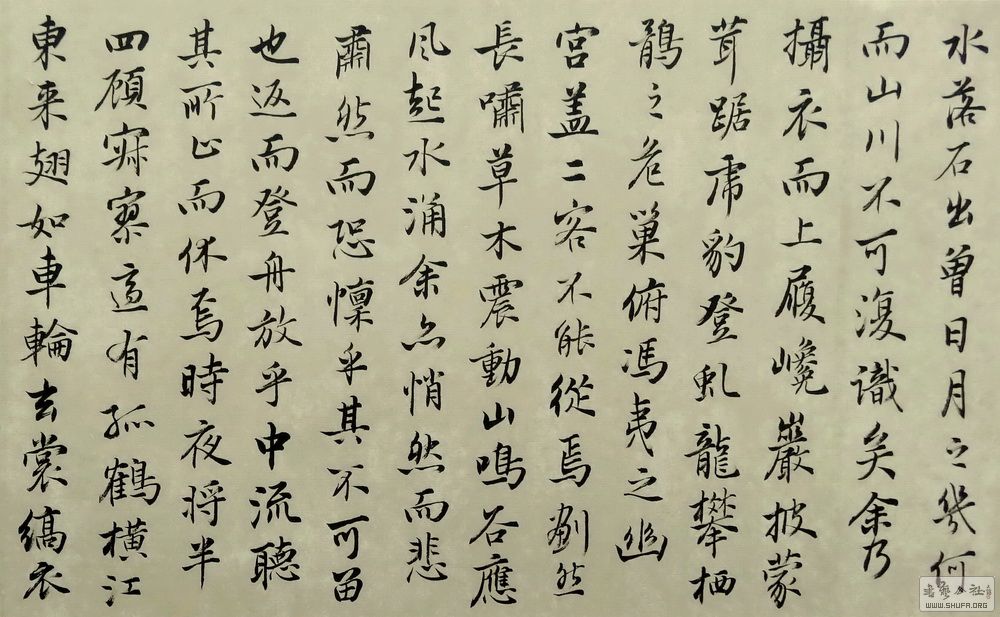 水落石出曾日月之幾何
而山川不可復識矣余乃
攝衣而上履巉巖披蒙
茸踞虎豹登虬龍攀栖
鶻之危巢俯馮夷之幽
宮盖二客不能從焉劃然
長嘯草木震動山鳴谷應
风起水涌余亦悄然而悲
肅然而恐懍乎其不可留
也返而登舟放乎中流聽
其所止而休焉時夜將半
四顧寂寥適有孤鶴橫江
東来翅如車輪玄裳縞衣
書藝公社
WWW.SHUFA.ORG